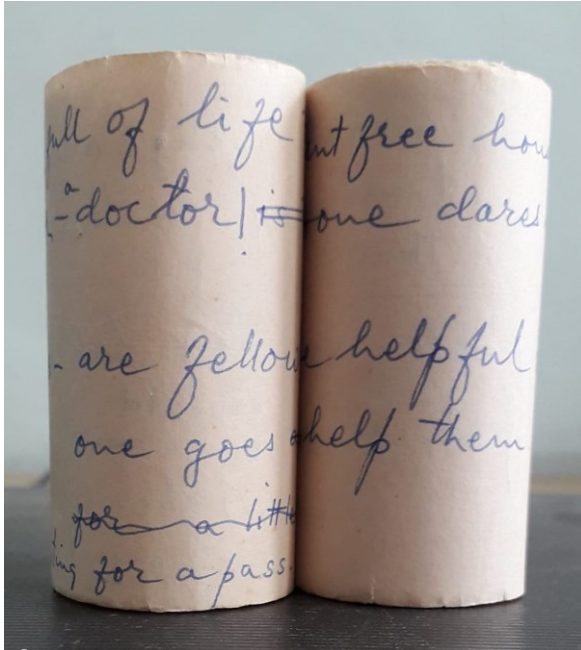 full of life
a
- doctor| is
- are fellow
one goes
for a little
ting for a pass.
ent free hou
one dares
helpful
help them